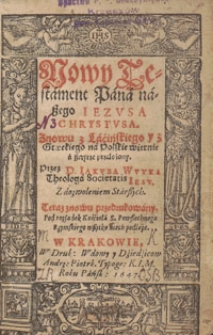 IHS
Nowy Te-
stament Pana na-
szego IEZVSA
CHRYSTVSA.
Znowu z Łacińskiego y z
Greckiego na Polskie wiernie
á szczyrze przełożony:
Przez D. IAKVBA WVYKA
Theologa Societatis IESV.
Z dozwoleniem Stárszych.
Teraz znowu przedrukowány,
Pod rozsądek Kościołá S. Powszechnego
Rzymskiego wszytko niech podlega.
W KRAKOWIE,
W Druk: Wdowy y Dźiedźicow
Andrz: Piotrk: Typogr: K.I.M.
Roku Páńsk: 1647